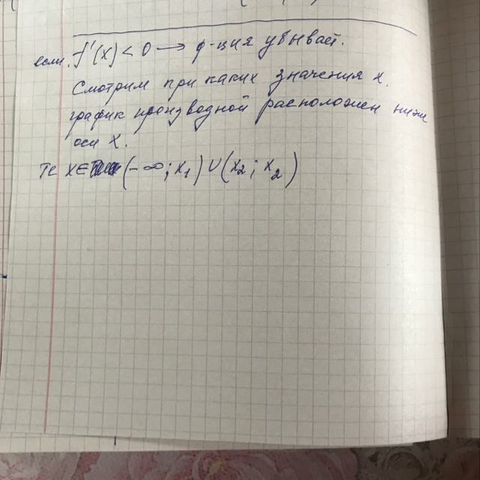 если f'(x) < 0 → ф-ция убывает.
Смотрим при каких значения х.
график производной расположен ниже
оси Х.
те x∈ (-∞; x₁) ∪ (x₂; x₂)